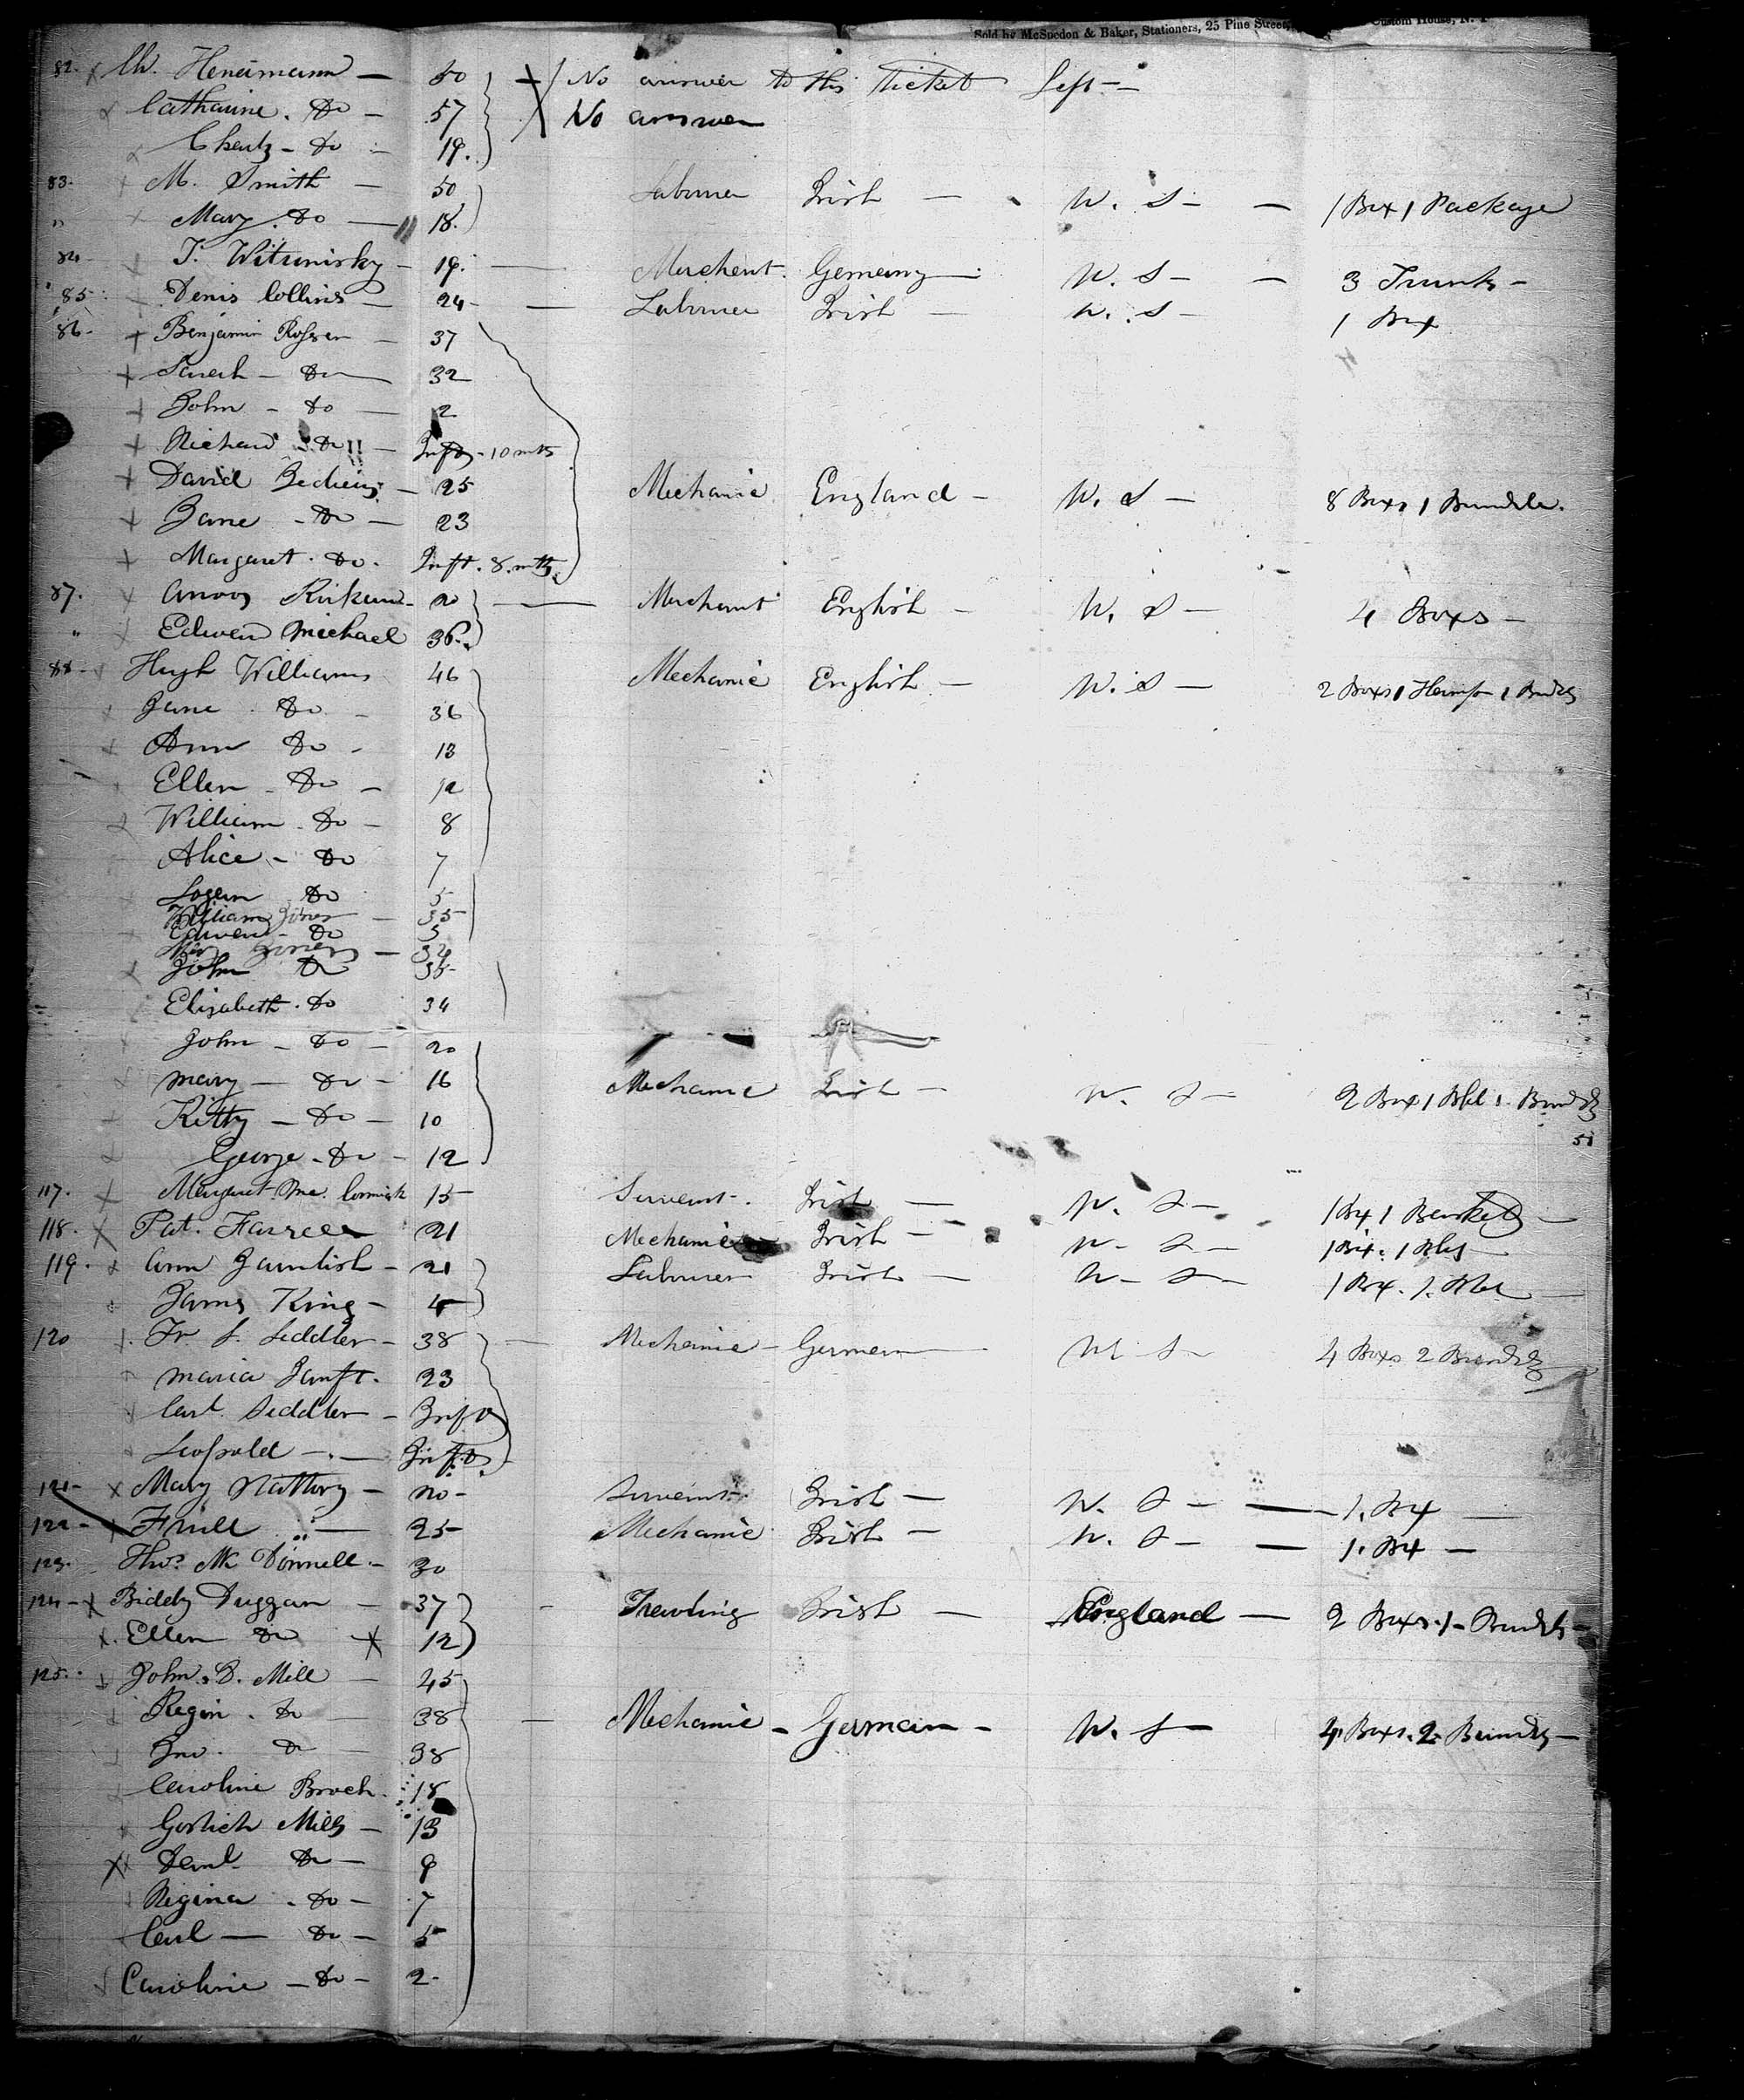 Sold by McSpedon & Baker, Stationers, 25 Pine Street, Custom House, N. Y
82. Ch. Heneimann — 50 No answer to this ticket Left —
Catharine. Do — 57 No answer
Do — 19.
83. M. Smith — 50 Labourer Irish — W. S — — 1 Box 1 Package
" Mary. Do — 18.
84. J. Witunisky — 19. — Merchent. Gemeny — W. S — — 3 Trunks —
85. Denis Collins — 24 — Labourer Irish — W. S — 1 Box
86. Benjamin Rosser — 37
Sarah — Do — 32
John — Do — 2
Richard Do — Inft — 10 mts
David — 25 Mechanic England — W. S — 8 Boxs 1 Bundle.
Jane — Do — 23
Margaret. Do. Inft. 8. mths
87. Amos — 20 — Merchant English — W. S — 4 Boxs —
" Edwen Michael 36.
88 — Hugh Williams 46 Mechanic English — W. S — 2 Boxs 1 1 Bundls
Jane Do — 36
Ann Do — 13
Ellen — Do — 12
William. Do — 8
Alice — Do 7
Do 5
William Jones — 35
Edwen — Do 5
Jones —
John Do 35
Elizabeth. Do 34
John — Do — 20
Mary — Do — 16 Mechanic Irish — W. S — 2 Box 1 Bbl 1. Bundls
Kitty — Do — 10
51
George — Do — 12
117. Margaret Mc. Cormick 15 Servent. Irish — W. S — 1 Bx 1 Basket —
118. Pat. Farrell 21 Mechanic Irish — W. S — 1 Bx. 1
119. Ann Gauntlish — 21 Labourer Irish — W — S — 1 Bx. 1. —
James King — 4
120 Fr. S. Seddler — 38 — Mechanic — German — W. S — 4 Boxs 2 Bundls
Maria 23
Carl. Seddler — Inft
Leopold — . — Inft
121 — Mary Slattery — 20 — Servent. Irish — W. S — — 1. Bx —
122 — " — 25 — Mechanic Irish — W. S — — 1. Bx —
123. Thos. Mc Donnell — 30
124 — Biddy Duggan — 37 — Traveling Irish — England — 2 Boxs. 1 — Bundls —
Ellen Do 12
125. John. D. Mill — 45
Regin. Do — 38 — Mechanic — German — W. S — 4 Boxs. 2 Bundls —
Jno. Do — 38
Caroline Broch. 18
Gorlich Mills — 13
Do — 9
Regina. Do — 7
Carl — Do — 5
Caroline — Do — 2 —